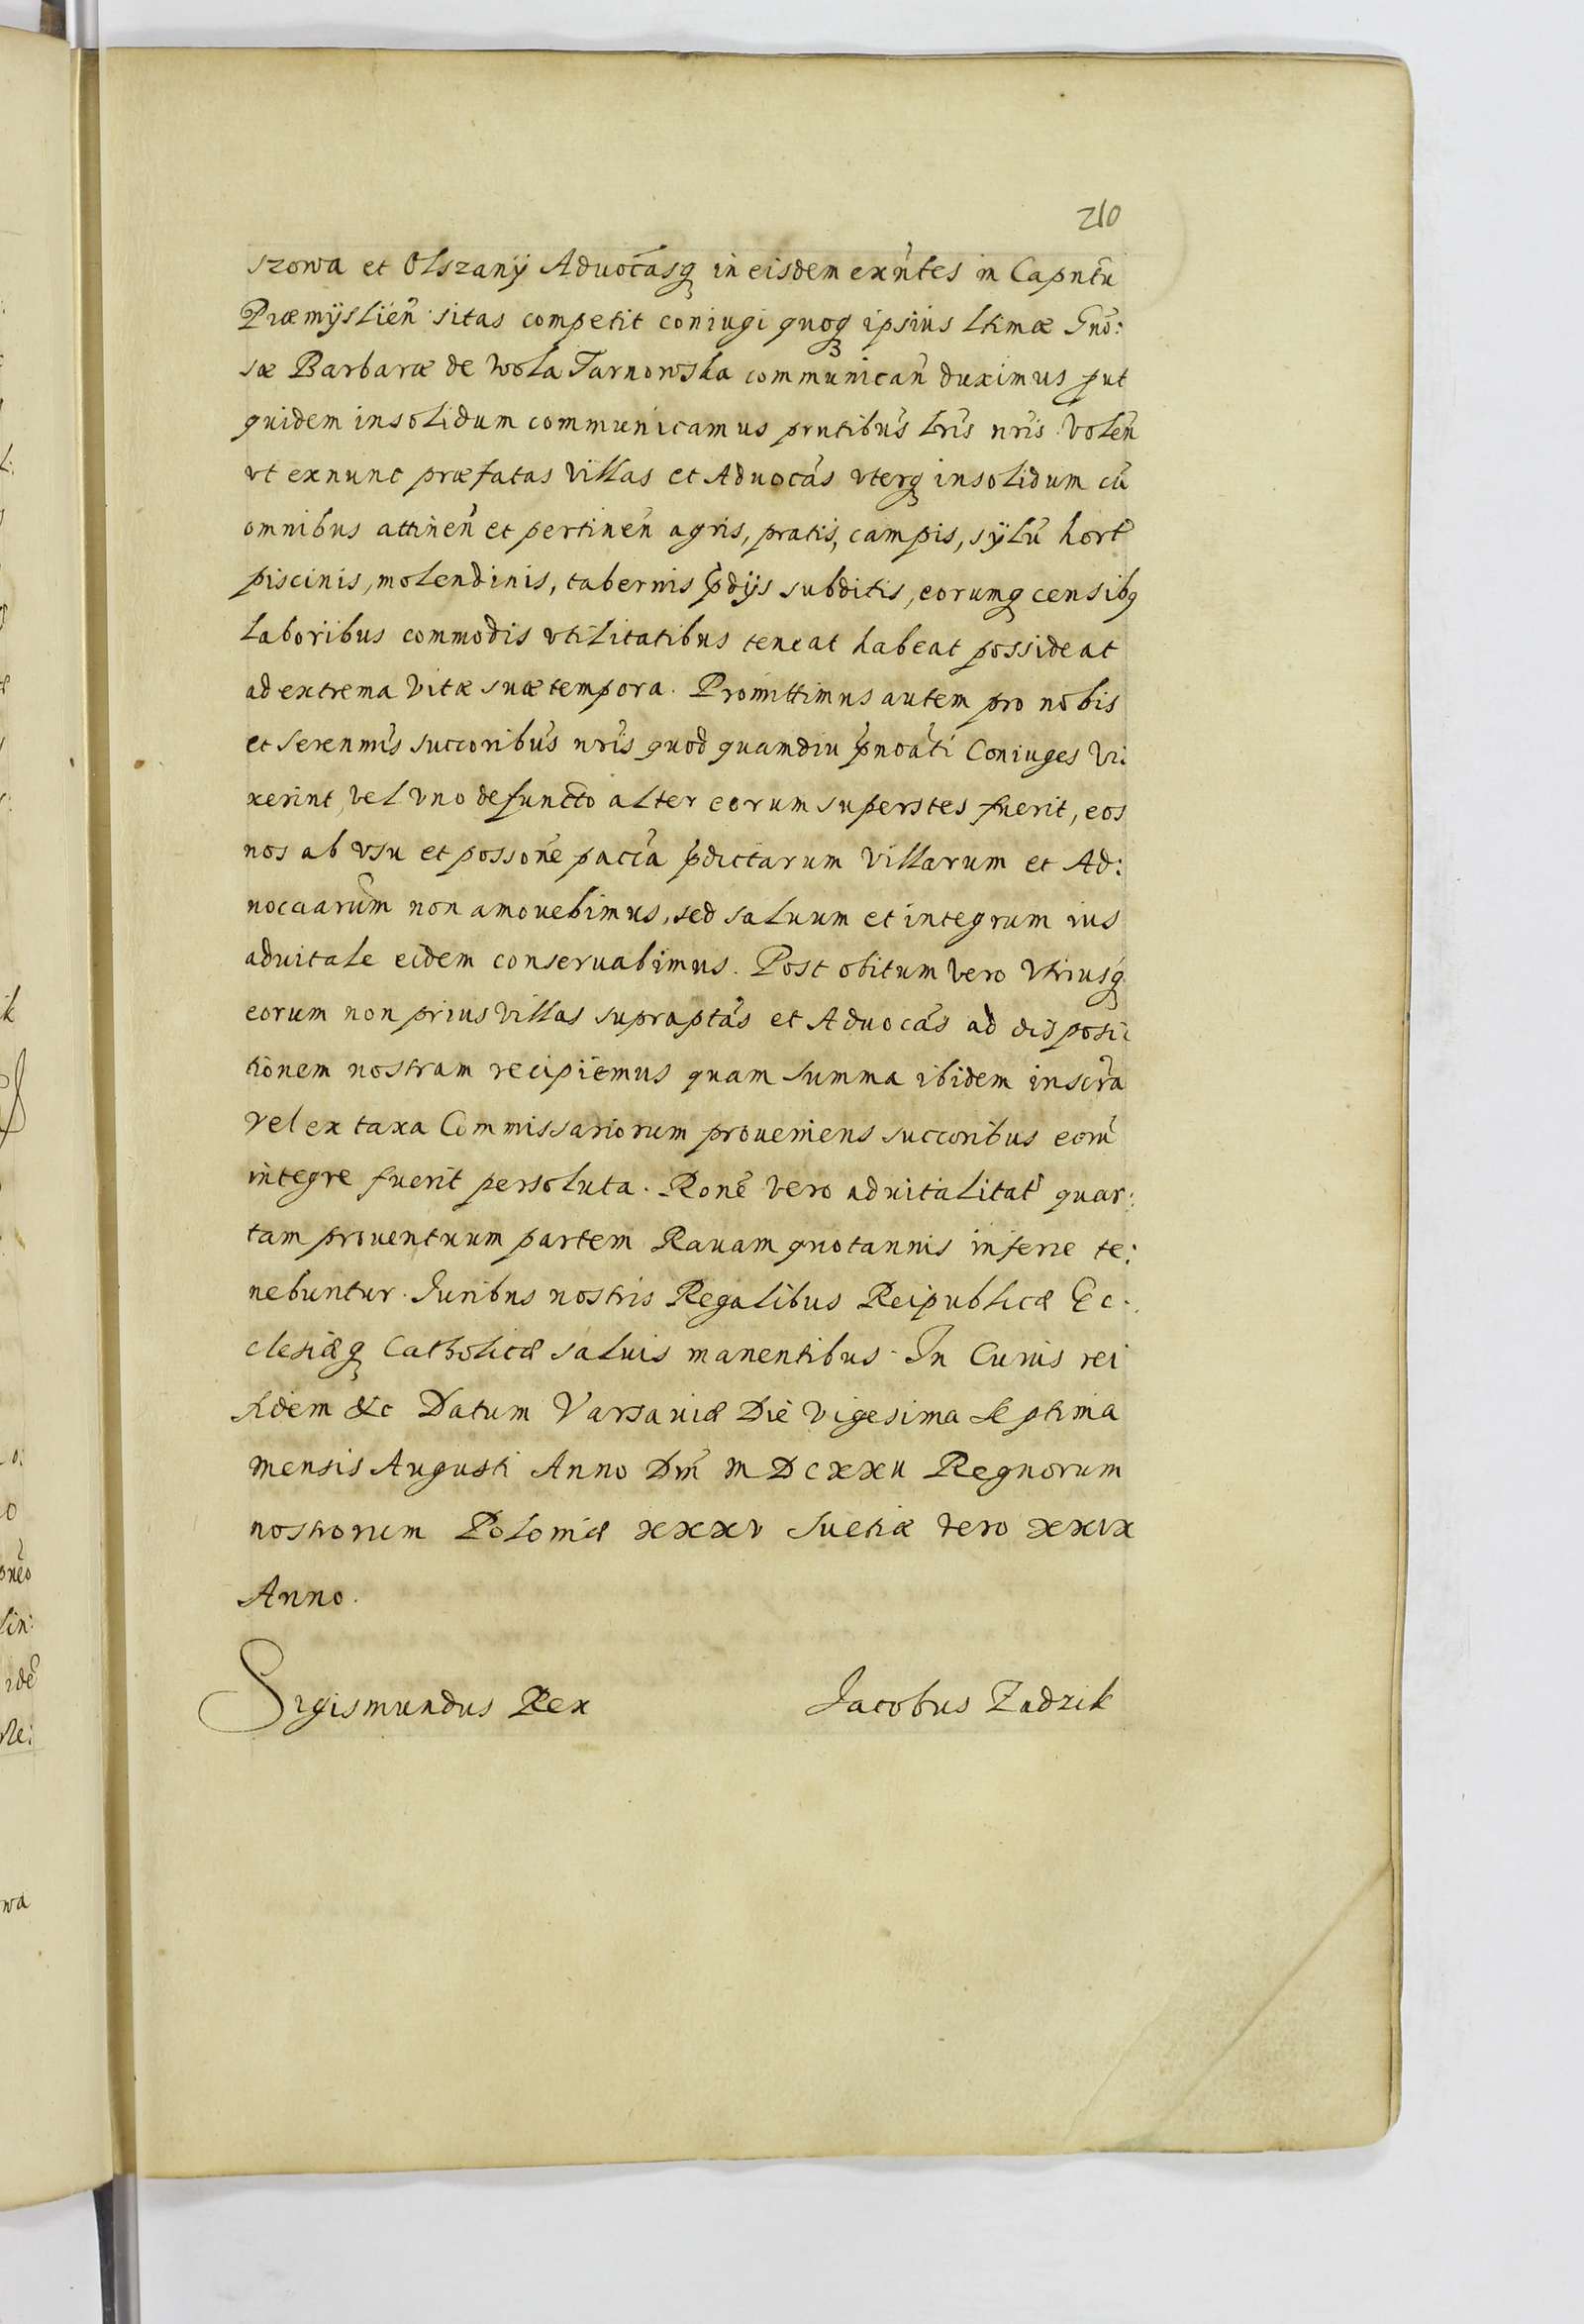 210
szowa et Olszanÿ Aduocãsq in eisdem exñtes in Capnẽu
Præmÿslieñ sitas competit coniugi quoq ipsius Ltimæ Gnõ:
sæ Barbaræ de Wola Tarnowska communicañ duximus put
quidem insolidum communicamus pntibus Lris nris Voleñ
vt exnunc præfatas villas et Aduocãs vterq insolidum cũ
omnibus attineñ et pertineñ agris, pratis, campis, sÿlũ hort
piscinis, molendinis, tabernis pdÿs subditis, eorumq censibq
laboribus commodis vtilitatibus teneat habeat possideat
ad extrema Vitæ suæ tempora. Promittimus autem pro nobis
et Serenmis succoribus nris quod quamdiu pnoãti Coniuges Vi:
xerint vel vno defuncto alter eorum superstes fuerit, eos
nos ab vsu et possone pacca pdictarum Villarum et Ad:
uocaarum non amouebimus, sed saluum et integrum ius
aduitale eidem conseruabimus. Post obitum vero Vtriusq
eorum non prius Villas supraptãs et Aduocãs ad dispositi
tionem nostram recipiemus quam summa ibidem inscra
vel ex taxa Commissariorum proueniens succoribus eorũ
integre fuerit persoluta. Rone vero aduitalitat quar:
tam prouentuum partem Rauam quotannis inferre te:
nebuntur. Iuribus nostris Regalibus Reipublicæ Ec:
clesiæq Catholicæ saluis manentibus. In Cuius rei
fidem &c Datum Varsauiæ Die Vigesima Septima
mensis Augusti Anno Dni MDCXXII Regnorum
nostrorum Poloniæ XXXV Suetiæ vero XXIX
Anno.
Sigismundus Rex Iacobus Zadzik